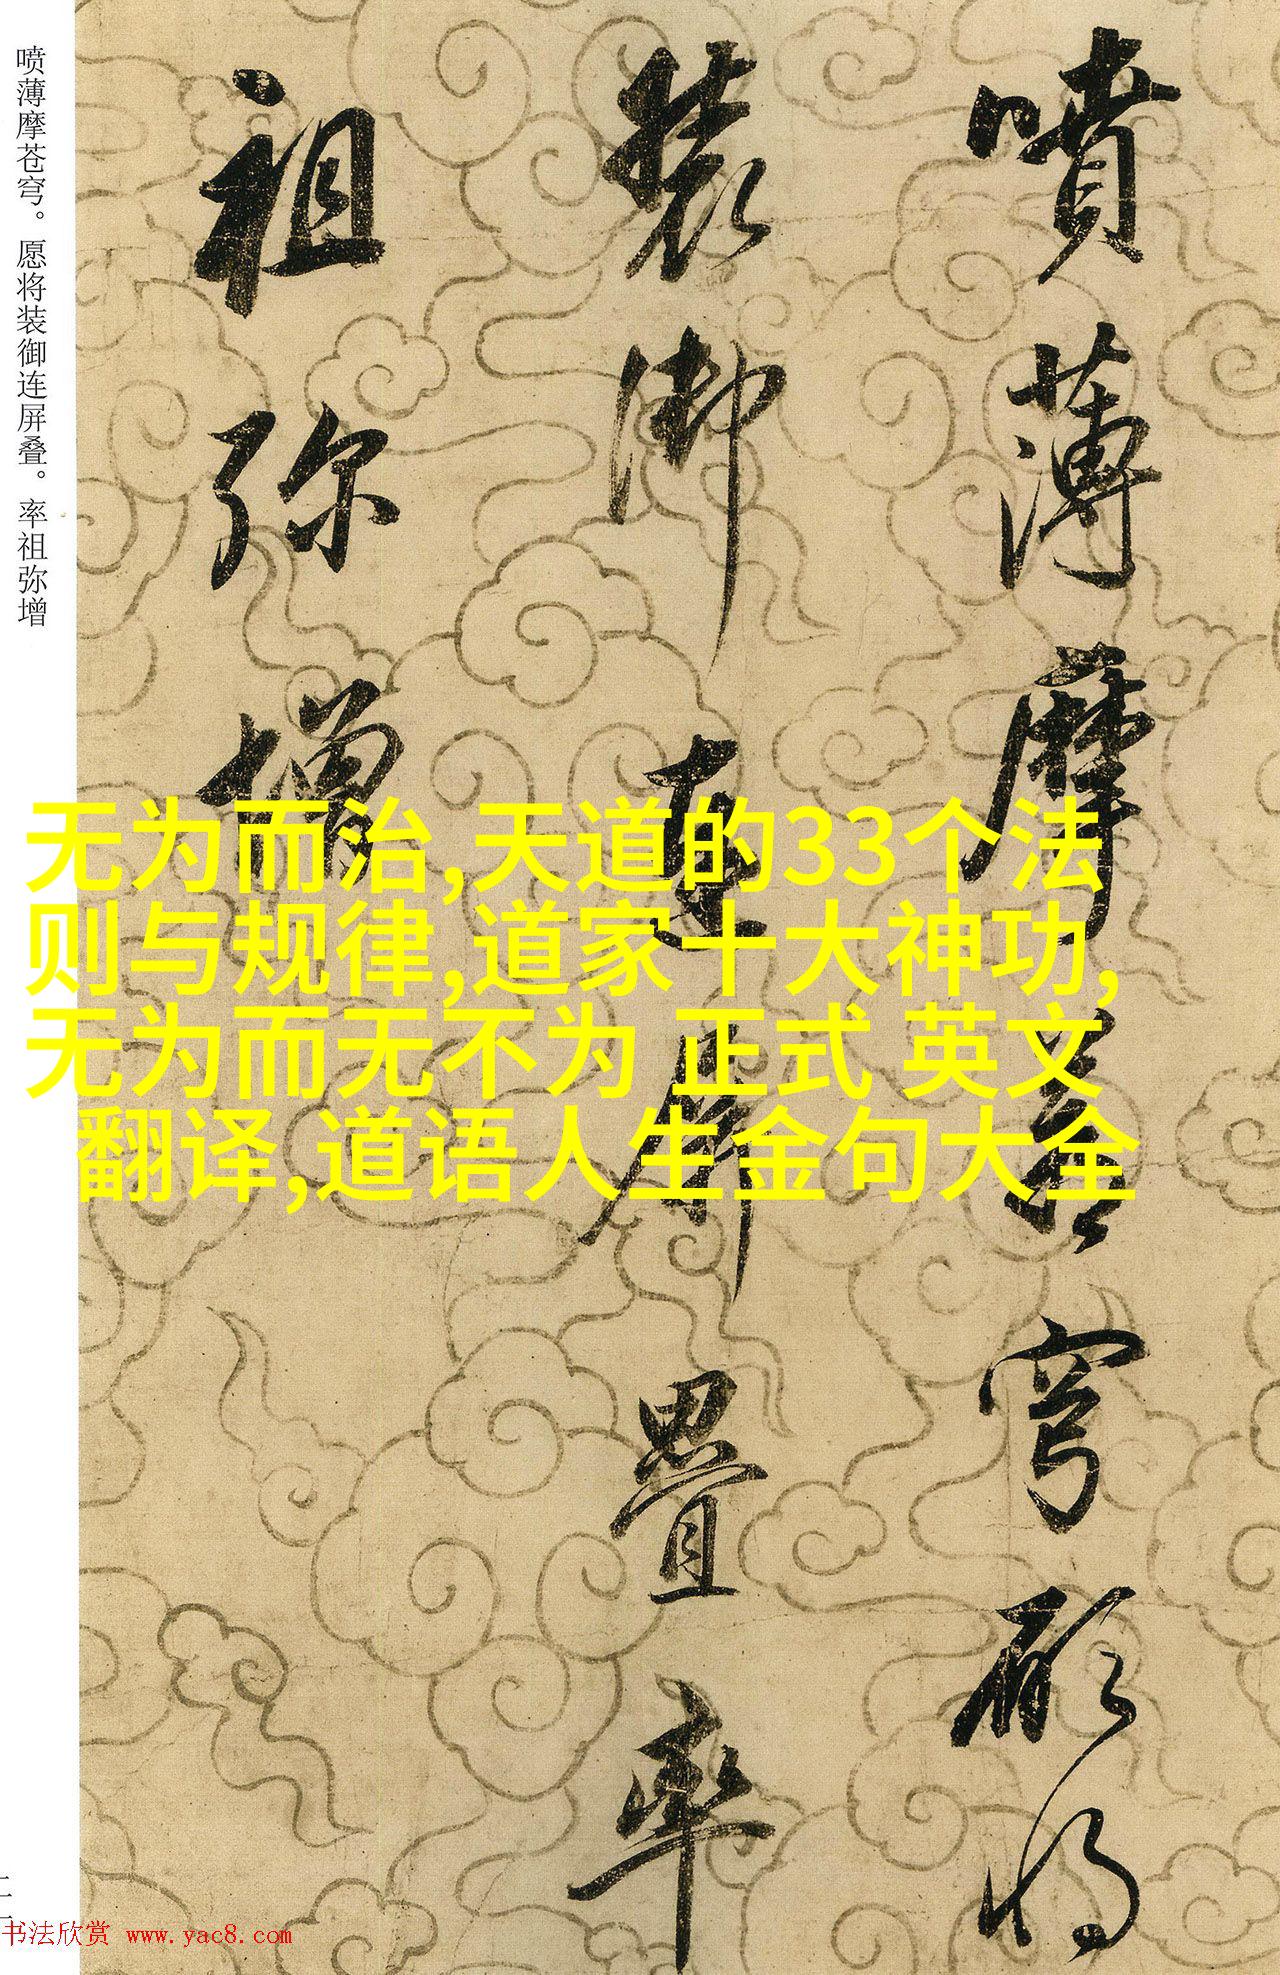 喷薄摩苍穹。愿将装御连屏叠。率祖弥增
噴薄摩蒼穹願將
装御連屏疊率
祖弥增
无为而治,天道的33个法
则与规律,道家十大神功,
无为而无不为 正式 英文
翻译,道语人生金句大全
书法欣赏 www.yac8.com